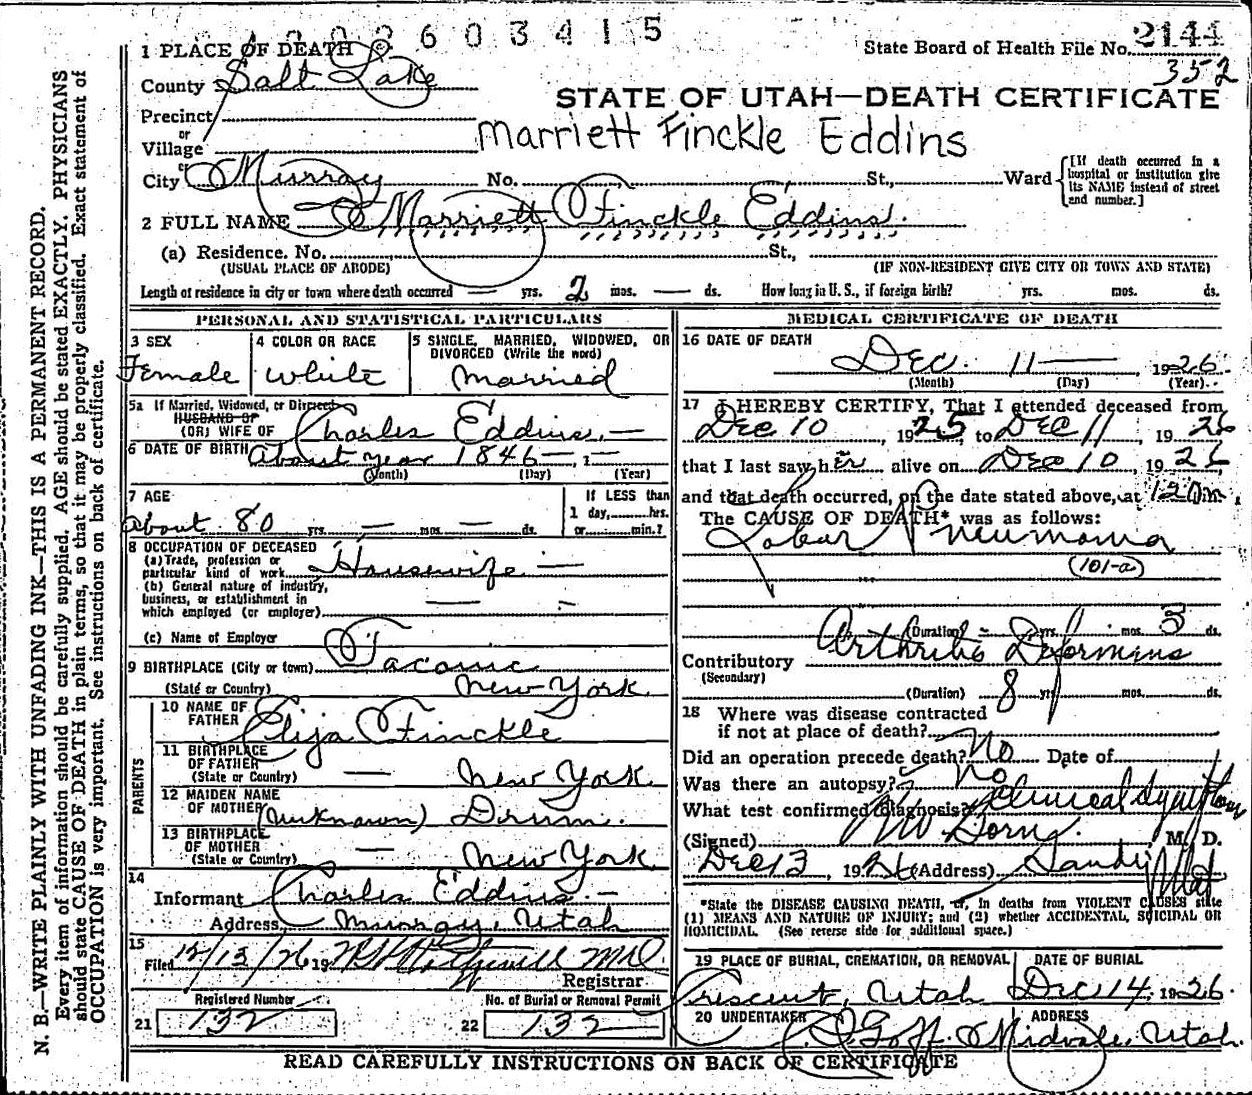 2603415
State Board of Health File No. 2144
352
1 PLACE OF DEATH
County Salt Lake
STATE OF UTAH—DEATH CERTIFICATE
Precinct
or
Village
Marriett Finckle Eddins
or
City Murray No. St., Ward
[If death occurred in a hospital or institution give its NAME instead of street and number.]
2 FULL NAME Marriett Finckle Eddins.
(a) Residence. No. St.,
(USUAL PLACE OF ABODE) (IF NON-RESIDENT GIVE CITY OR TOWN AND STATE)
Length of residence in city or town where death occurred — yrs. 2 mos. — ds. How long in U. S., if foreign birth? yrs. mos. ds.
PERSONAL AND STATISTICAL PARTICULARS
3 SEX
Female
4 COLOR OR RACE
White
5 SINGLE, MARRIED, WIDOWED, OR DIVORCED (Write the word)
Married
5a If Married, Widowed, or Divorced
HUSBAND OF
(OR) WIFE OF Charles Eddins. —
6 DATE OF BIRTH About year 1846 —
(Month) (Day) (Year)
7 AGE
About 80 yrs. — mos. — ds.
If LESS than
1 day, hrs.
or min.?
8 OCCUPATION OF DECEASED
(a) Trade, profession or
particular kind of work Housewife —
(b) General nature of industry,
business, or establishment in
which employed (or employer) —
(c) Name of Employer
9 BIRTHPLACE (City or town) Taconic
(State or Country) New York
PARENTS
10 NAME OF
FATHER Elija Finckle
11 BIRTHPLACE
OF FATHER
(State or Country) — New York
12 MAIDEN NAME
OF MOTHER (Unknown) Drum.
13 BIRTHPLACE
OF MOTHER
(State or Country) — New York
14
Informant Charles Eddins —
Address Murray, Utah
15
Filed 12/13/26 19 M.D.
Registrar.
Registered Number
21 132
No. of Burial or Removal Permit
22 132
MEDICAL CERTIFICATE OF DEATH
16 DATE OF DEATH
Dec. 11 — 1926.
(Month) (Day) (Year)
17 I HEREBY CERTIFY, That I attended deceased from
Dec 10, 1925, to Dec 11, 1926
that I last saw her alive on Dec 10, 1926
and that death occurred, on the date stated above, at m.
The CAUSE OF DEATH* was as follows:
Lobar Pneumonia
(101-a)
(Duration) — yrs. mos. 3 ds.
Contributory Arthritis Deformans
(Secondary)
(Duration) 8 yrs. mos. ds.
18 Where was disease contracted
if not at place of death?
Did an operation precede death? No Date of
Was there an autopsy? No
What test confirmed diagnosis? Clinical Symptoms
(Signed) M. D.
Dec 13, 1926 (Address) Sandy Utah
*State the DISEASE CAUSING DEATH, or, in deaths from VIOLENT CAUSES state
(1) MEANS AND NATURE OF INJURY; and (2) whether ACCIDENTAL, SUICIDAL OR
HOMICIDAL. (See reverse side for additional space.)
19 PLACE OF BURIAL, CREMATION, OR REMOVAL
Crescent, Utah
DATE OF BURIAL
Dec 14, 1926.
20 UNDERTAKER
Goff.
ADDRESS
Midvale, Utah.
READ CAREFULLY INSTRUCTIONS ON BACK OF CERTIFICATE
N. B.—WRITE PLAINLY WITH UNFADING INK—THIS IS A PERMANENT RECORD.
Every item of information should be carefully supplied. AGE should be stated EXACTLY. PHYSICIANS
should state CAUSE OF DEATH in plain terms, so that it may be properly classified. Exact statement of
OCCUPATION is very important. See instructions on back of certificate.